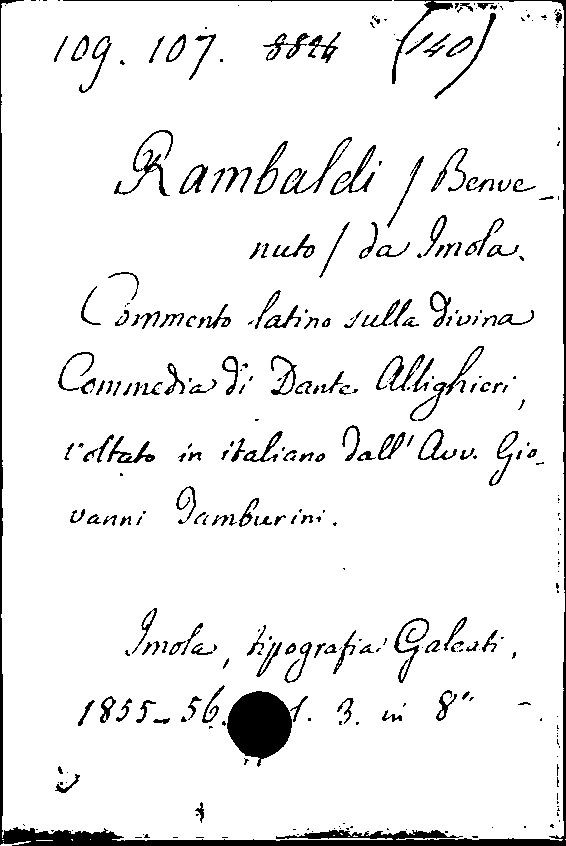 109. 107. 8824 (140)
Rambaldi / Benve-
nuto / da Imola.
Commento latino sulla divina
Commedia di Dante Allighieri,
voltato in italiano dall' Avv. Gio-
vanni Tamburini.
Imola, tipografia Galeati,
1855-56. 3. in 8°